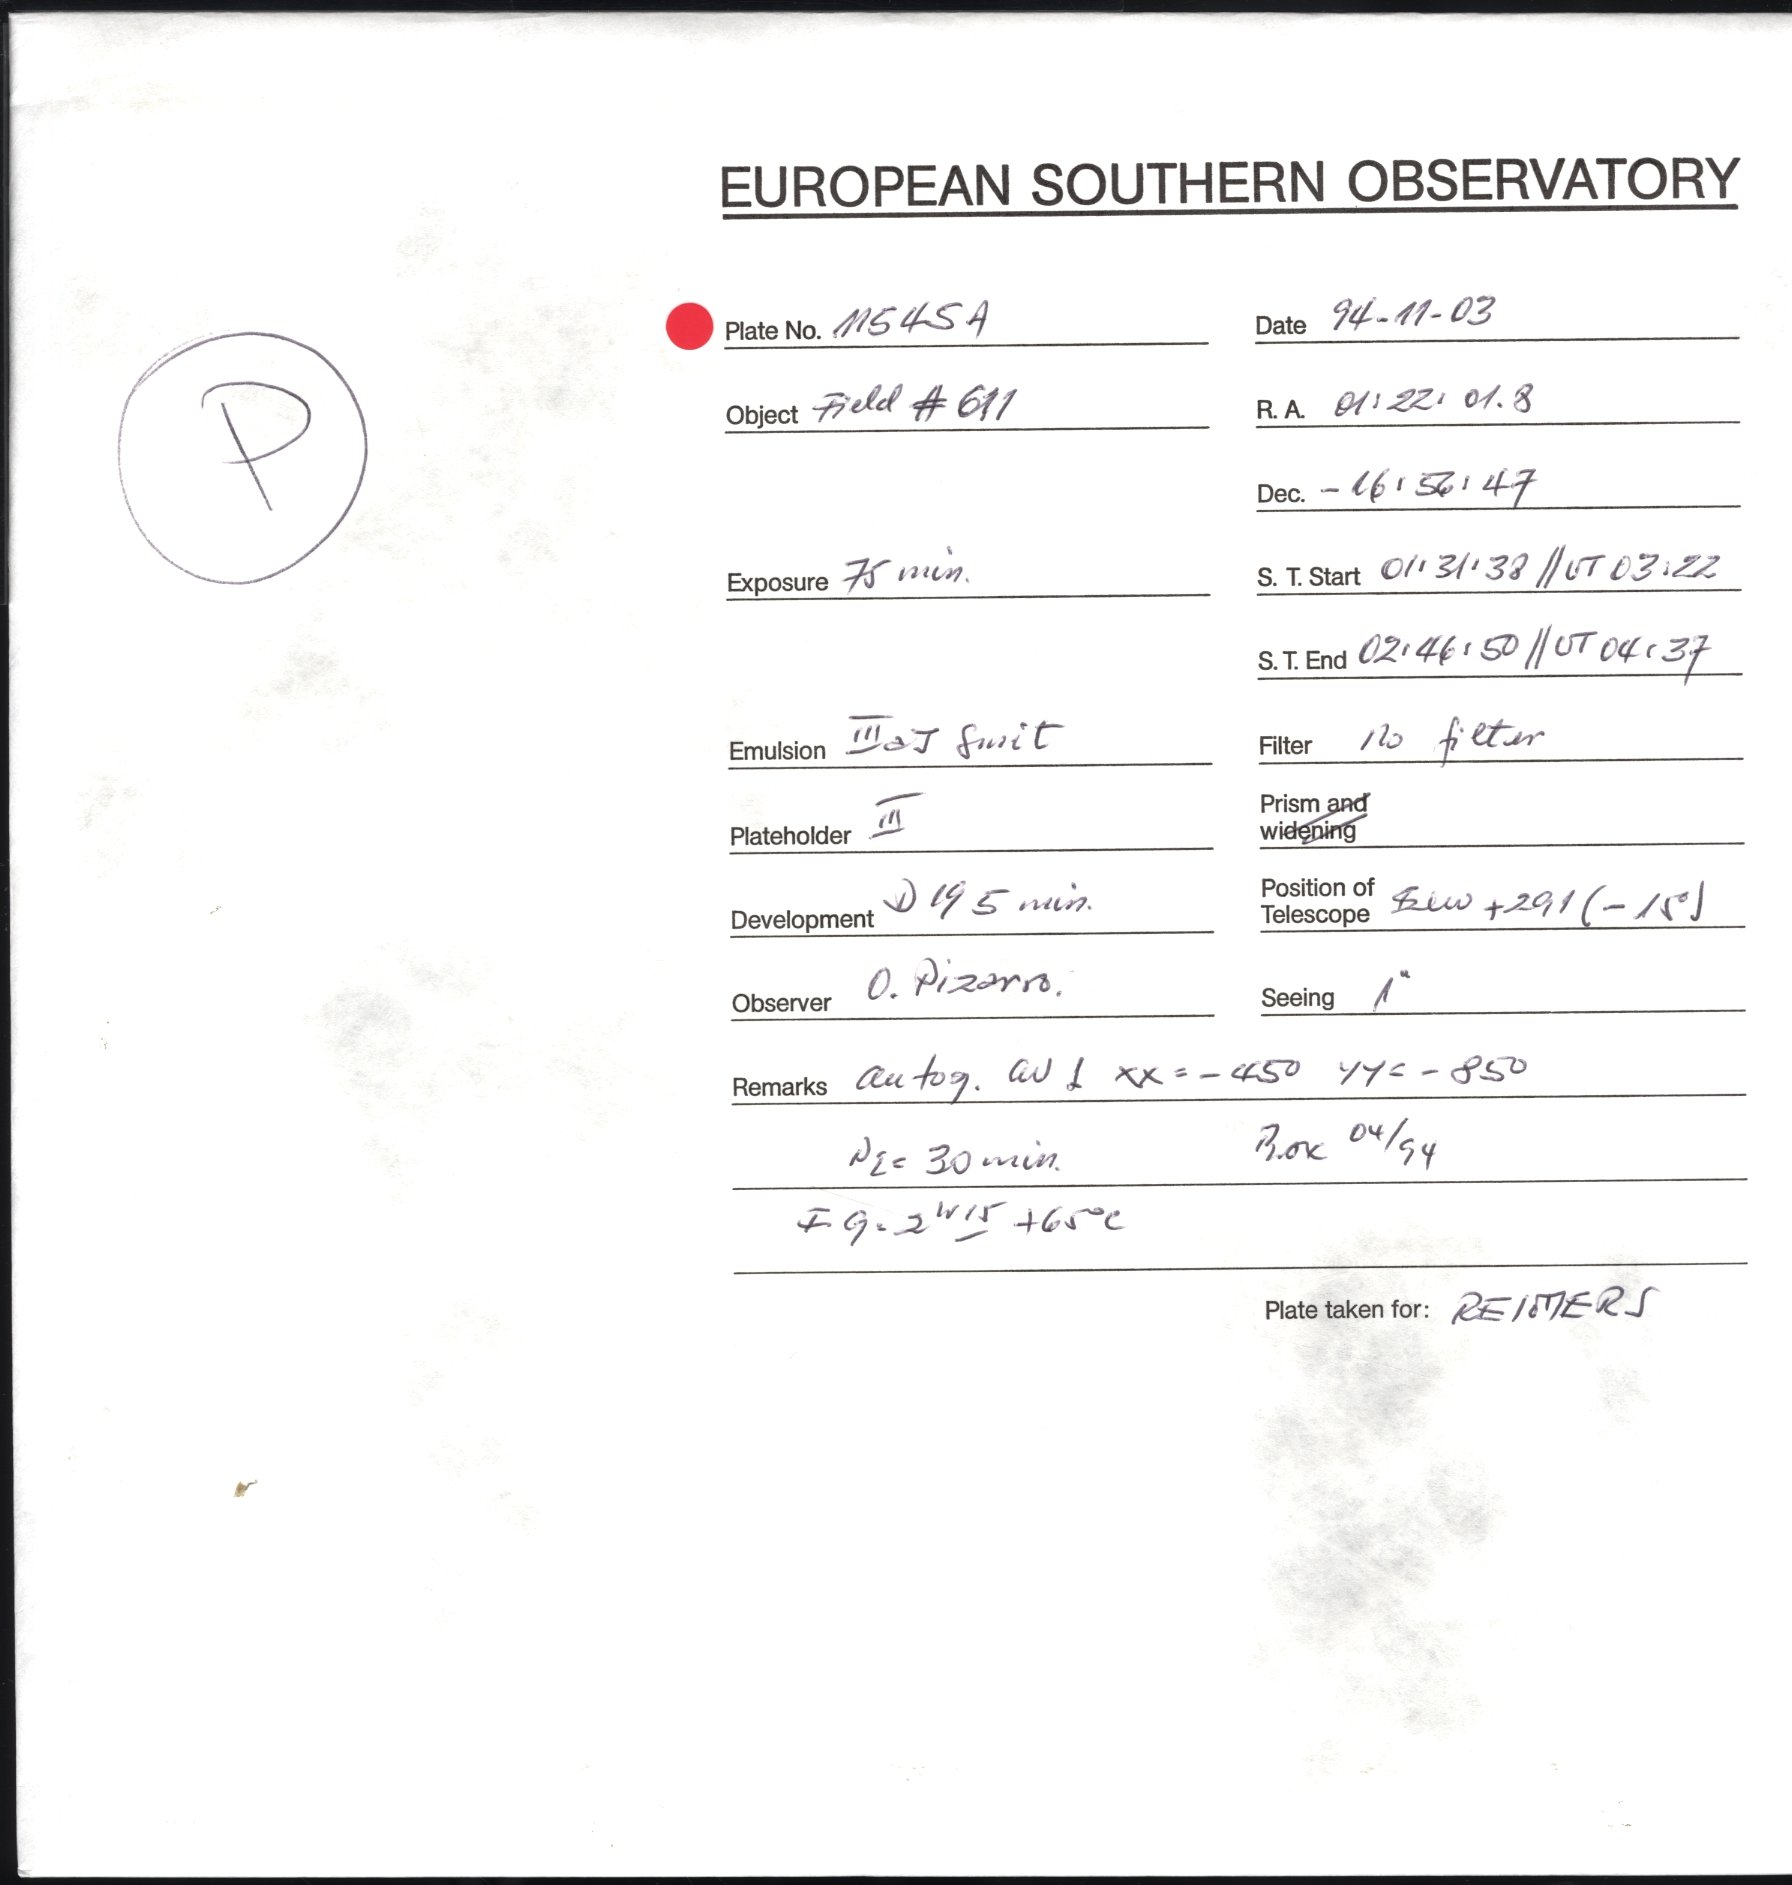 EUROPEAN SOUTHERN OBSERVATORY
P
Plate No. 11545A Date 94-11-03
Object Field # 611 R. A. 01:22:01.8
Dec. -16:56:47
Exposure 75 min. S. T. Start 01:31:38 // UT 03:22
S. T. End 02:46:50 // UT 04:37
Emulsion IIIaJ Filter no filter
Plateholder III Prism and widening
Development D19 5 min. Position of Telescope +291 (-15°)
Observer O. Pizarro. Seeing 1"
Remarks autog. xx = -450 yy = -850
N2 = 30 min. Box 04/94
+65°C
Plate taken for: REIMERS